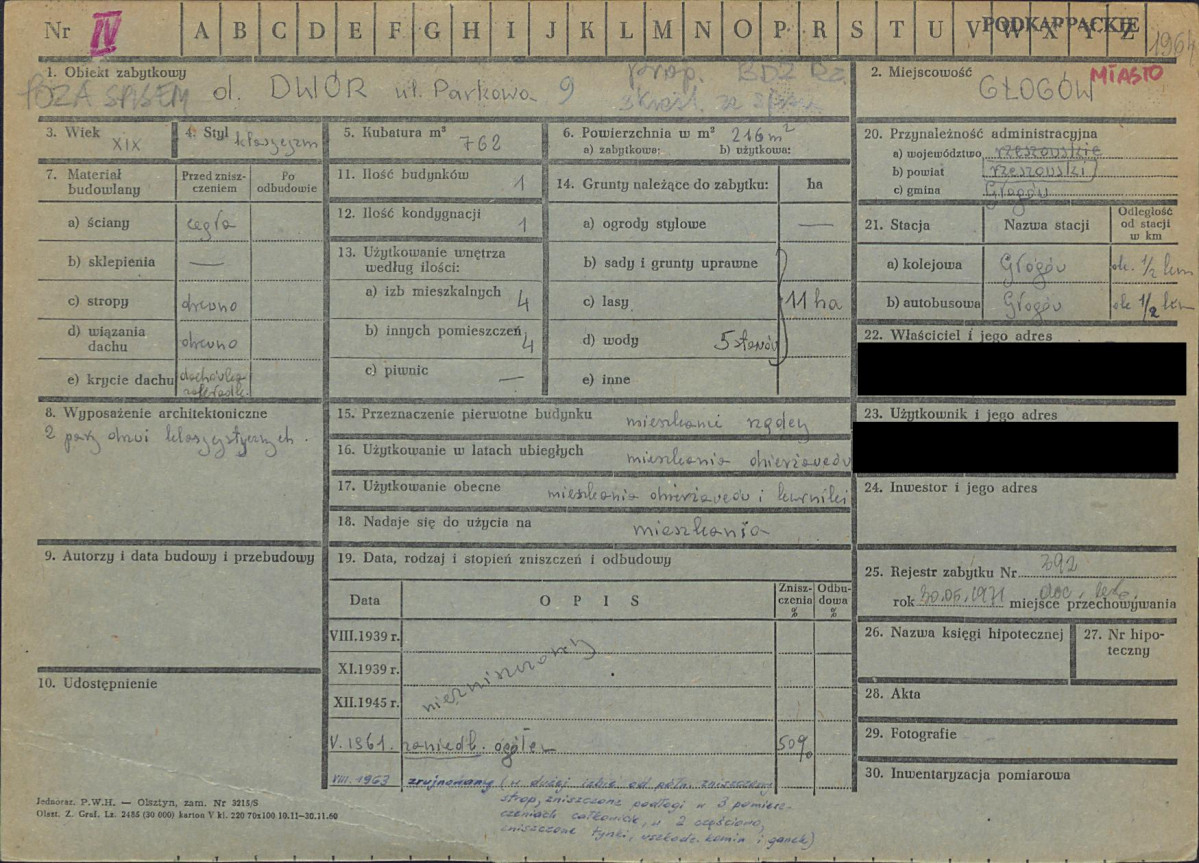 Nr IV A B C D E F G H I J K L M N O P R S T U V W X Y Z PODKARPACKIE 1964
1. Obiekt zabytkowy
POZA SPISEM ol. DWÓR ul. Parkowa 9
prop. BDZ Rz.
skreśl. ze spisu
2. Miejscowość GŁOGÓW MIASTO
3. Wiek XIX
4. Styl klasycyzm
5. Kubatura m³ 762
6. Powierzchnia w m² 216 m²
a) zabytkowa: b) użytkowa:
7. Materiał budowlany
Przed zniszczeniem
Po odbudowie
a) ściany cegła
b) sklepienia —
c) stropy drewno
d) wiązania dachu drewno
e) krycie dachu dachówka
8. Wyposażenie architektoniczne
2 pary drzwi klasycystycznych.
9. Autorzy i data budowy i przebudowy
10. Udostępnienie
11. Ilość budynków 1
12. Ilość kondygnacji 1
13. Użytkowanie wnętrza według ilości:
a) izb mieszkalnych 4
b) innych pomieszczeń 4
c) piwnic —
14. Grunty należące do zabytku: ha
a) ogrody stylowe —
b) sady i grunty uprawne
c) lasy 11 ha
d) wody 5 stawów
e) inne
15. Przeznaczenie pierwotne budynku mieszkanie rządcy
16. Użytkowanie w latach ubiegłych mieszkania
17. Użytkowanie obecne mieszkania i kurniki
18. Nadaje się do użycia na mieszkania
19. Data, rodzaj i stopień zniszczeń i odbudowy
Data OPIS Zniszczenia % Odbudowa %
VIII.1939 r.
XI.1939 r.
XII.1945 r.
niezniszczony
V. 1961. zaniedb. ogółem 50%
VIII. 1963 zrujnowany (w dużej izbie od półn. zniszczony
strop, zniszczone podłogi w 3 pomiesz-
czeniach całkowicie, w 2 częściowo,
zniszczone tynki, uszkodz. komin i ganek)
20. Przynależność administracyjna
a) województwo rzeszowskie
b) powiat rzeszowski
c) gmina Głogów
21. Stacja Nazwa stacji Odległość od stacji w km
a) kolejowa Głogów ok. 1/2 km
b) autobusowa Głogów ok 1/2 km
22. Właściciel i jego adres
23. Użytkownik i jego adres
24. Inwestor i jego adres
25. Rejestr zabytku Nr 392
rok 30.06.1971 miejsce przechowywania
26. Nazwa księgi hipotecznej
27. Nr hipo-
teczny
28. Akta
29. Fotografie
30. Inwentaryzacja pomiarowa
Jednoraz. P.W.H. — Olsztyn, zam. Nr 3215/S
Olszt. Z. Graf. Lz. 2485 (30 000) karton V kl. 220 70x100 10.11-30.11.60